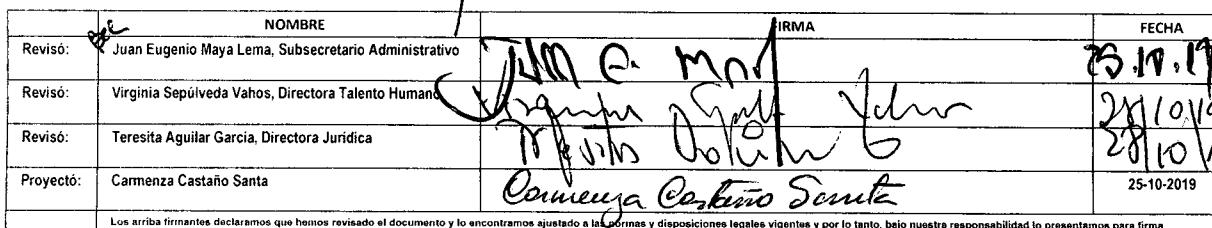 NOMBRE FIRMA FECHA
Revisó: Juan Eugenio Maya Lema, Subsecretario Administrativo 25.10.19
Revisó: Virginia Sepúlveda Vahos, Directora Talento Humano 28/10/19
Revisó: Teresita Aguilar García, Directora Jurídica 28/10/
Proyectó: Carmenza Castaño Santa Carmenza Castaño Santa 25-10-2019
Los arriba firmantes declaramos que hemos revisado el documento y lo encontramos ajustado a las normas y disposiciones legales vigentes y por lo tanto, bajo nuestra responsabilidad lo presentamos para firma